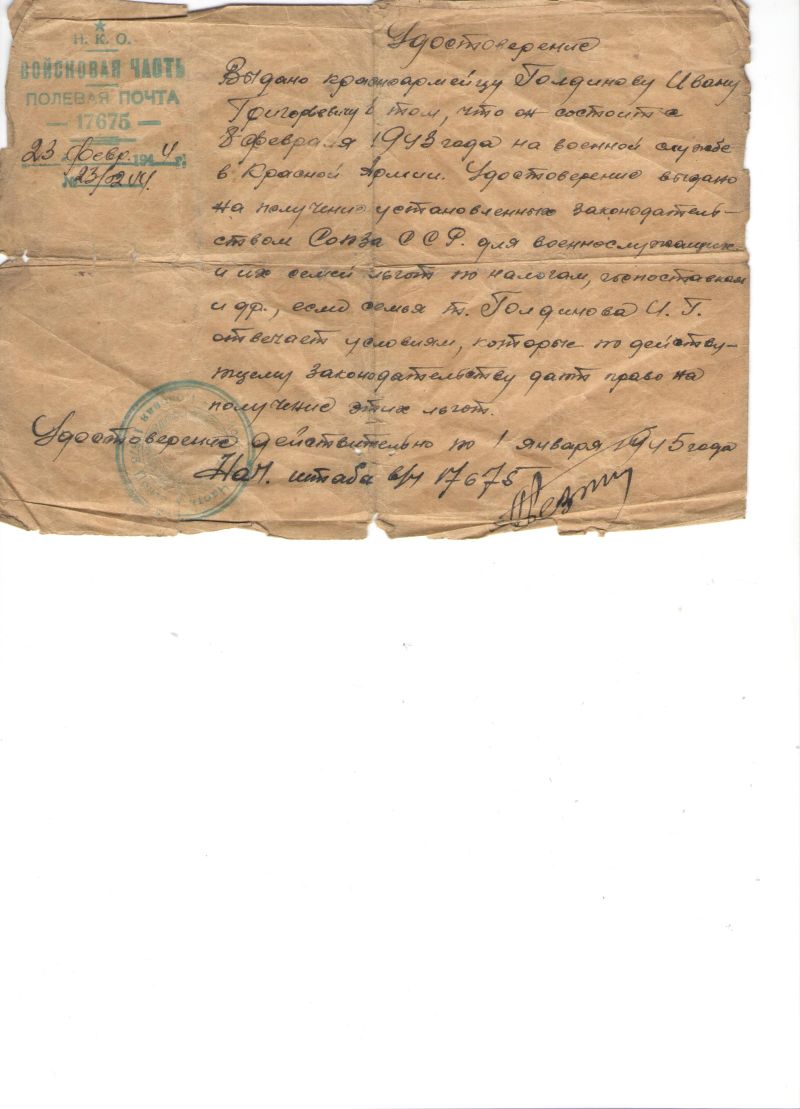 Н. К. О.
ВОЙСКОВАЯ ЧАСТЬ
ПОЛЕВАЯ ПОЧТА
— 17675 —
23 февр. 1944 г.
№ 23/02
Удостоверение
Выдано красноармейцу Голдинову Ивану
Григорьевичу в том, что он состоит с
8 февраля 1943 года на военной службе
в Красной Армии. Удостоверение выдано
на получение установленных законодатель-
ством Союза ССР. для военнослужащих
и их семей льгот по налогам, госпоставкам
и др., если семья т. Голдинова И. Г.
отвечает условиям, которые по действу-
ющему законодательству дают право на
получение этих льгот.
Удостоверение действительно по 1 января 1945 года
Нач. штаба в/ч 17675